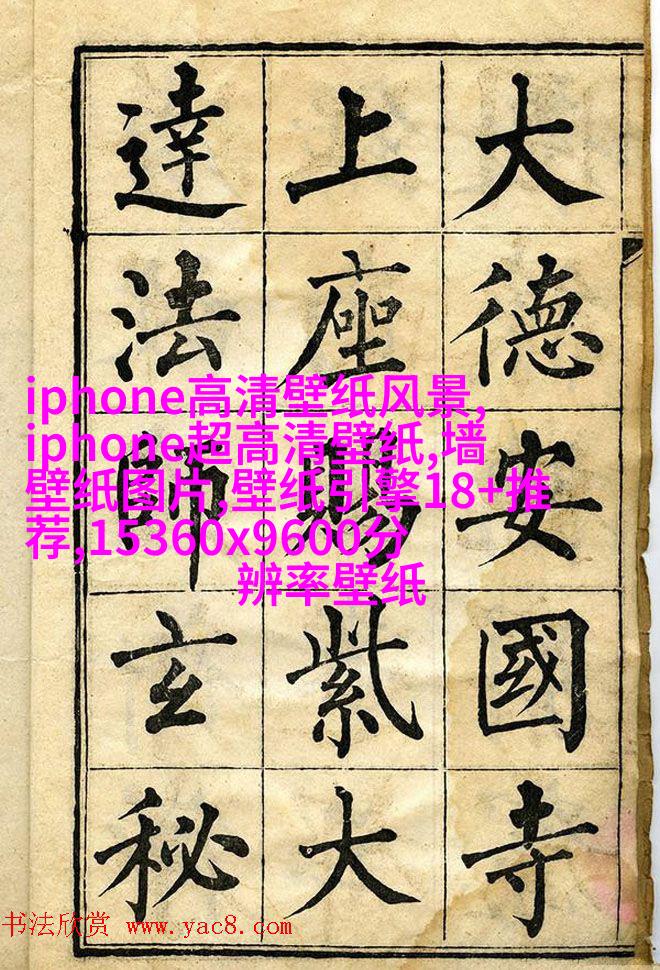 大德安國寺
上座賜紫大
達法師玄秘
iphone高清壁纸风景,
iphone超高清壁纸,墙
壁纸图片,壁纸引擎18+推
荐,15360x9600分
辨率壁纸
书法欣赏 www.yac8.com